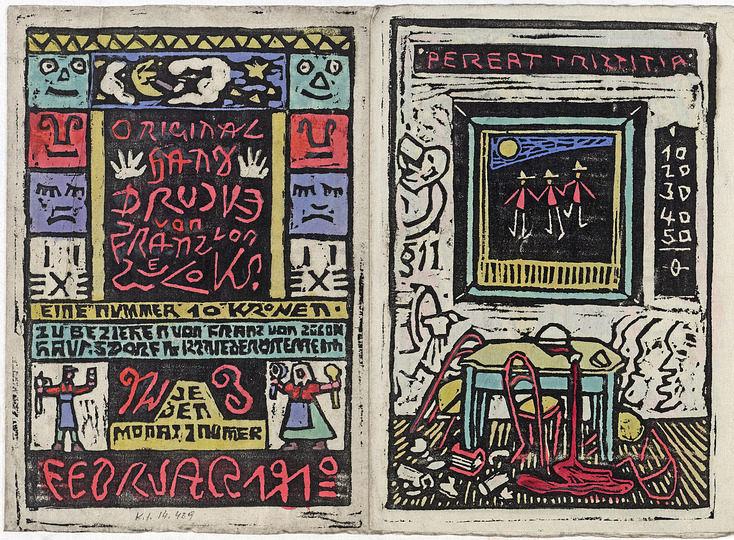 ORIGINAL
HAND
DRUCKE
von
FRANZ von
ZÜLOW.
EINE NUMMER 10 KRONEN.
ZU BEZIEHEN VON FRANZ von ZÜLOW
HAUGSDORF NIEDERÖSTERREICH
3
JE
DEN
MONAT 1 NUMER
FEBRUAR 1910
K.I. 14.429
PEREAT TRISTITIA
10
20
30
40
50
0